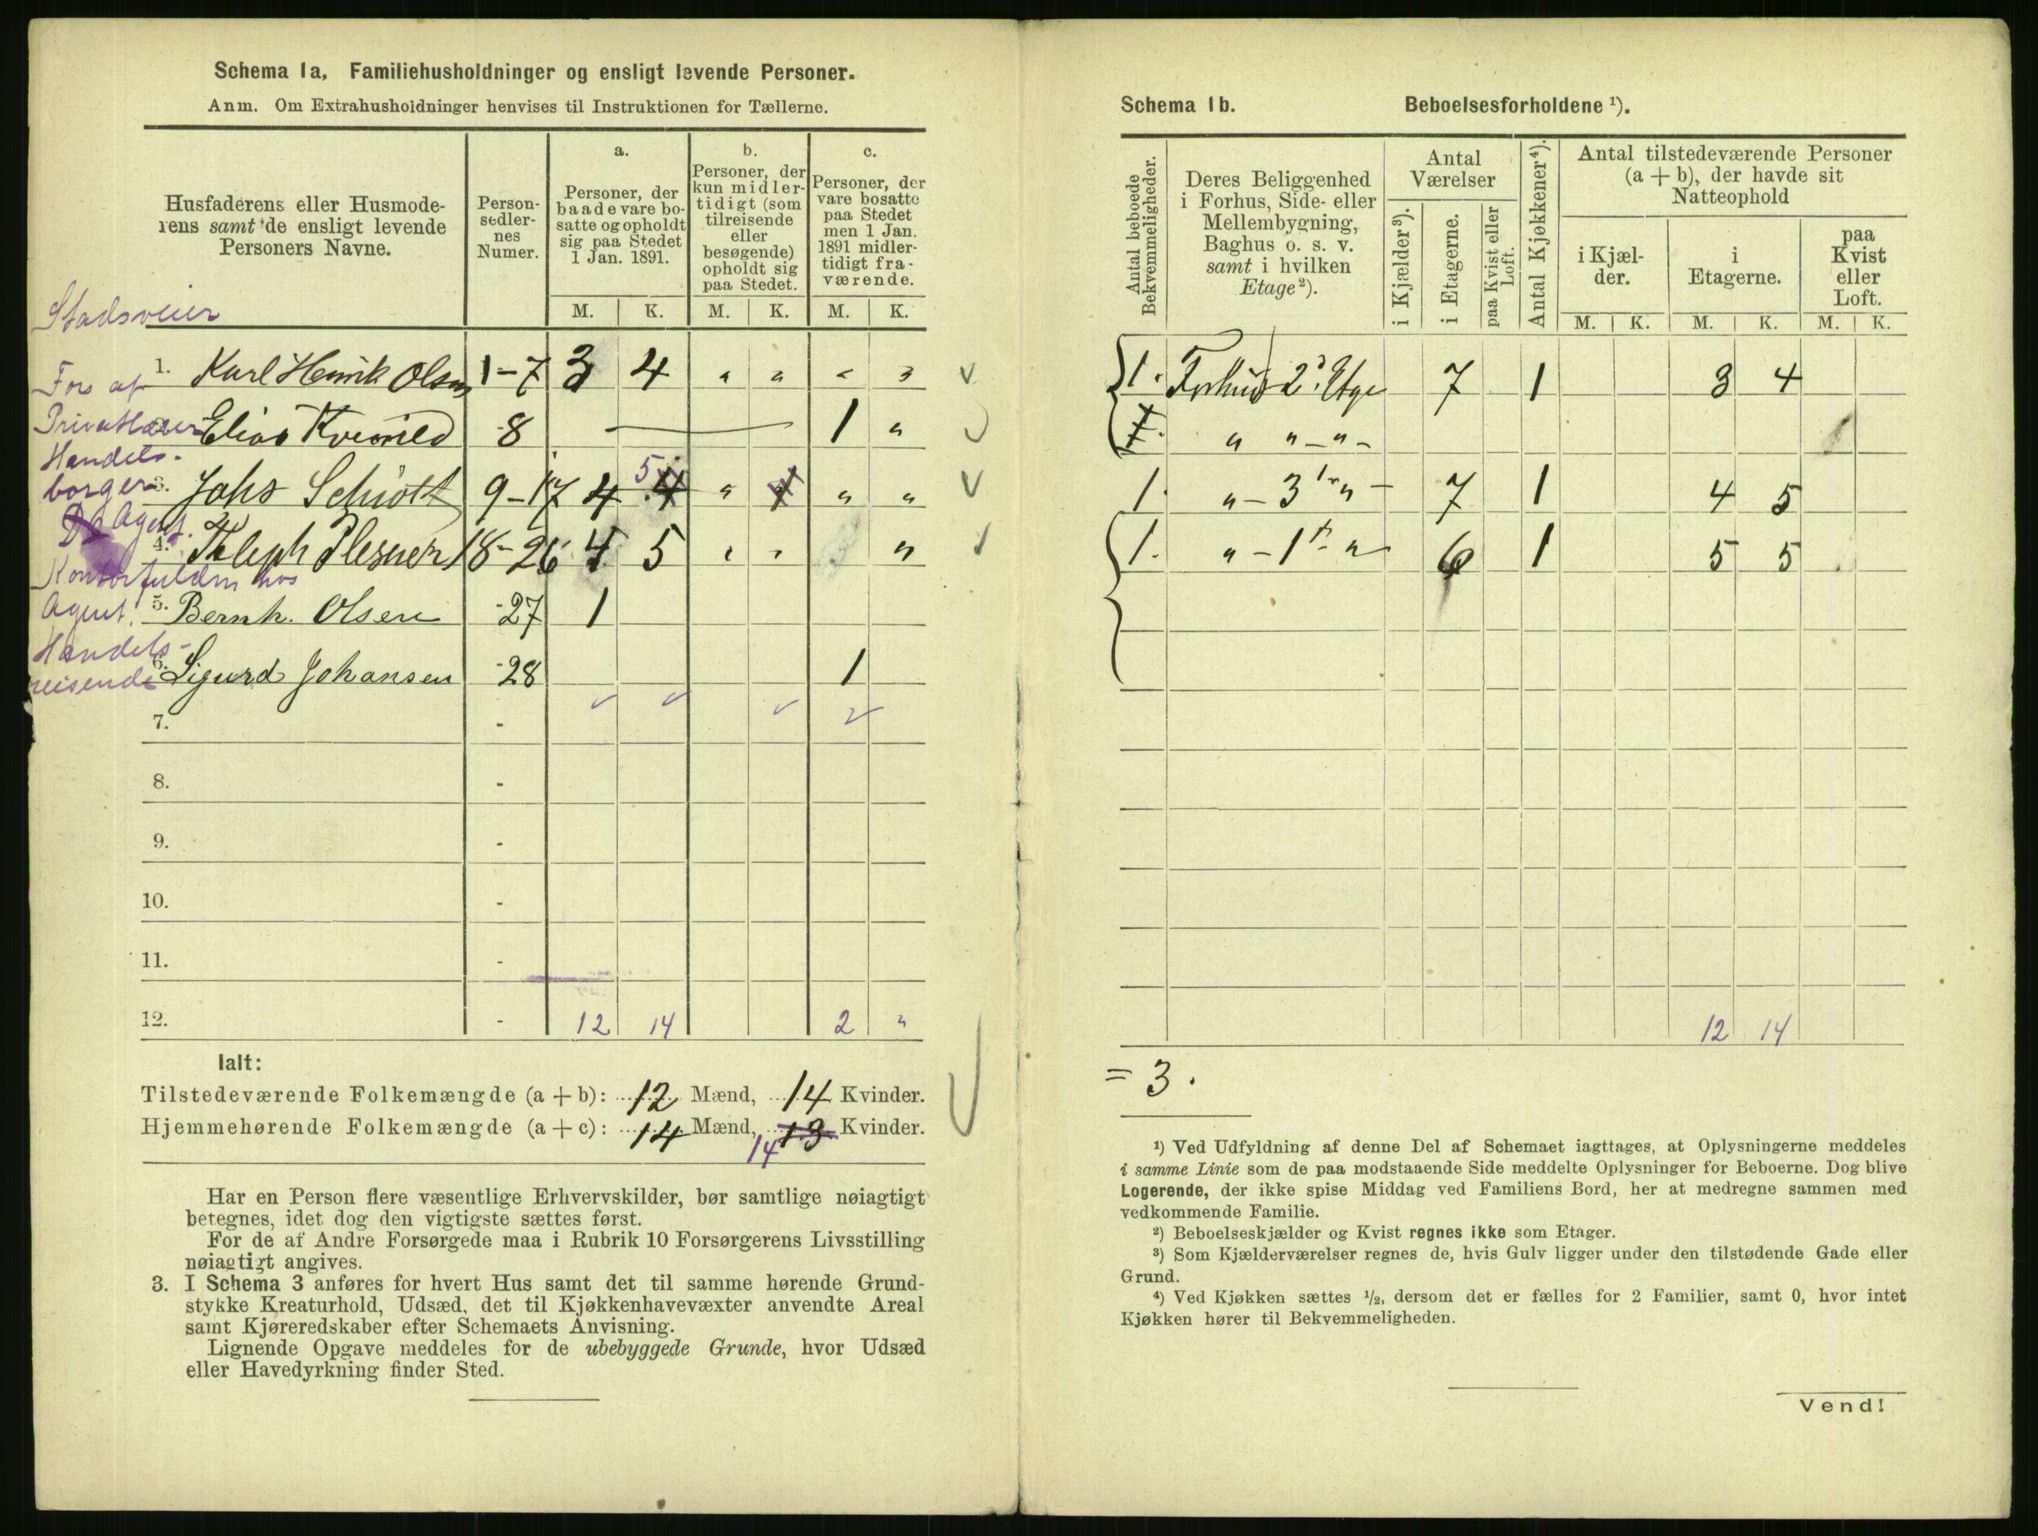 Schema 1a, Familiehusholdninger og ensligt levende Personer.
Anm. Om Extrahusholdninger henvises til Instruktionen for Tællerne.
Husfaderens eller Husmoderens samt de ensligt levende Personers Navne.
Personsedlernes Numer.
a.
Personer, der baade vare bosatte og opholdt sig paa Stedet 1 Jan. 1891.
b.
Personer, der kun midlertidigt (som tilreisende eller besøgende) opholdt sig paa Stedet.
c.
Personer, der vare bosatte paa Stedet men 1 Jan. 1891 midlertidigt fraværende.
M. K. M. K. M. K.
Stadsveier
1. Karl Henrik Olsen 1-7 3 4 " " " "
Fors af
Privatlærer Elias Kverneld -8 1 "
Handels-
borger 3. Johs Schiøtt 9-17 4 5 4 " 1 " "
Do Agent.
4. Theleph Plesner 18-26 4 5 " " "
Kontorfuldm hos
Agent. 5. Bernh. Olsen -27 1
Handels-
reisende 6. Sigurd Johansen -28 1
7. -
8. -
9. -
10. -
11. -
12. - 12 14 2 "
Ialt:
Tilstedeværende Folkemængde (a + b): 12 Mænd, 14 Kvinder.
Hjemmehørende Folkemængde (a + c): 14 Mænd, 14 13 Kvinder.
Har en Person flere væsentlige Erhvervskilder, bør samtlige nøiagtigt
betegnes, idet dog den vigtigste sættes først.
For de af Andre Forsørgede maa i Rubrik 10 Forsørgerens Livsstilling
nøiagtigt angives.
3. I Schema 3 anføres for hvert Hus samt det til samme hørende Grund-
stykke Kreaturhold, Udsæd, det til Kjøkkenhavevæxter anvendte Areal
samt Kjøreredskaber efter Schemaets Anvisning.
Lignende Opgave meddeles for de ubebyggede Grunde, hvor Udsæd
eller Havedyrkning finder Sted.
Schema 1b. Beboelsesforholdene ¹).
Antal beboede Bekvemmeligheder.
Deres Beliggenhed i Forhus, Side- eller Mellembygning, Baghus o. s. v. samt i hvilken Etage ²).
Antal Værelser
i Kjælder ³).
i Etagerne.
paa Kvist eller Loft.
Antal Kjøkkener ⁴).
Antal tilstedeværende Personer (a + b), der havde sit Natteophold
i Kjælder.
i Etagerne.
paa Kvist eller Loft.
M. K. M. K. M. K.
1. Forhus 2 Etge 7 1 3 4
1. " " - " -
1. " - 3 " - 7 1 4 5
1. " - 1 - " 6 1 5 5
12 14
= 3.
¹) Ved Udfyldning af denne Del af Schemaet iagttages, at Oplysningerne meddeles
i samme Linie som de paa modstaaende Side meddelte Oplysninger for Beboerne. Dog blive
Logerende, der ikke spise Middag ved Familiens Bord, her at medregne sammen med
vedkommende Familie.
²) Beboelseskjælder og Kvist regnes ikke som Etager.
³) Som Kjælderværelser regnes de, hvis Gulv ligger under den tilstødende Gade eller
Grund.
⁴) Ved Kjøkken sættes ½, dersom det er fælles for 2 Familier, samt 0, hvor intet
Kjøkken hører til Bekvemmeligheden.
Vend!